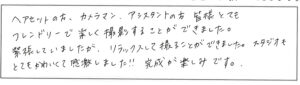 ヘアセットの方、カメラマン、アシスタントの方 皆様とても
フレンドリーで楽しく撮影することができました。
緊張していましたが、リラックスして撮ることができました。スタジオも
とてもかわいくて感動しました!! 完成が楽しみです。